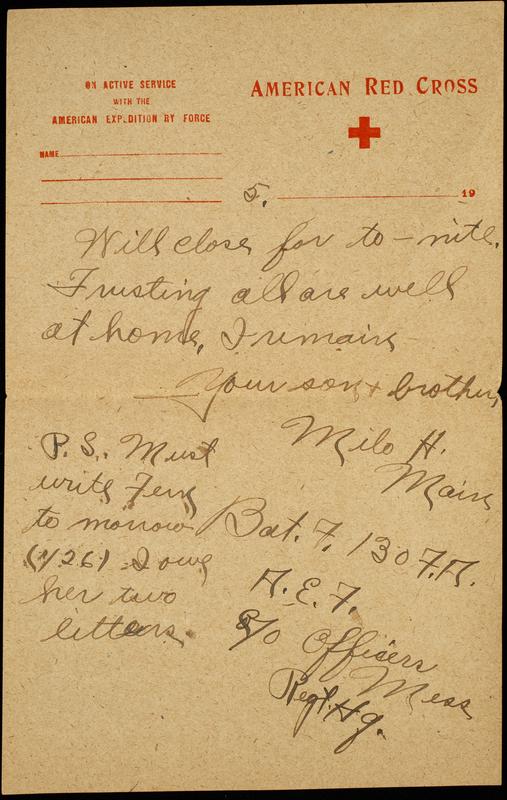 ON ACTIVE SERVICE
WITH THE
AMERICAN EXPEDITIONARY FORCE
AMERICAN RED CROSS
NAME
5.
19
Will close for to-nite.
Trusting all are well
at home, I remain
Your son + brother,
Milo H.
Main
Bat. F, 130 F.A.
A.E.F.
c/o Officers
Mess
Regt. Hq.
P.S. Must
write Fern
to morrow
(1/26) I owe
her two
letters.